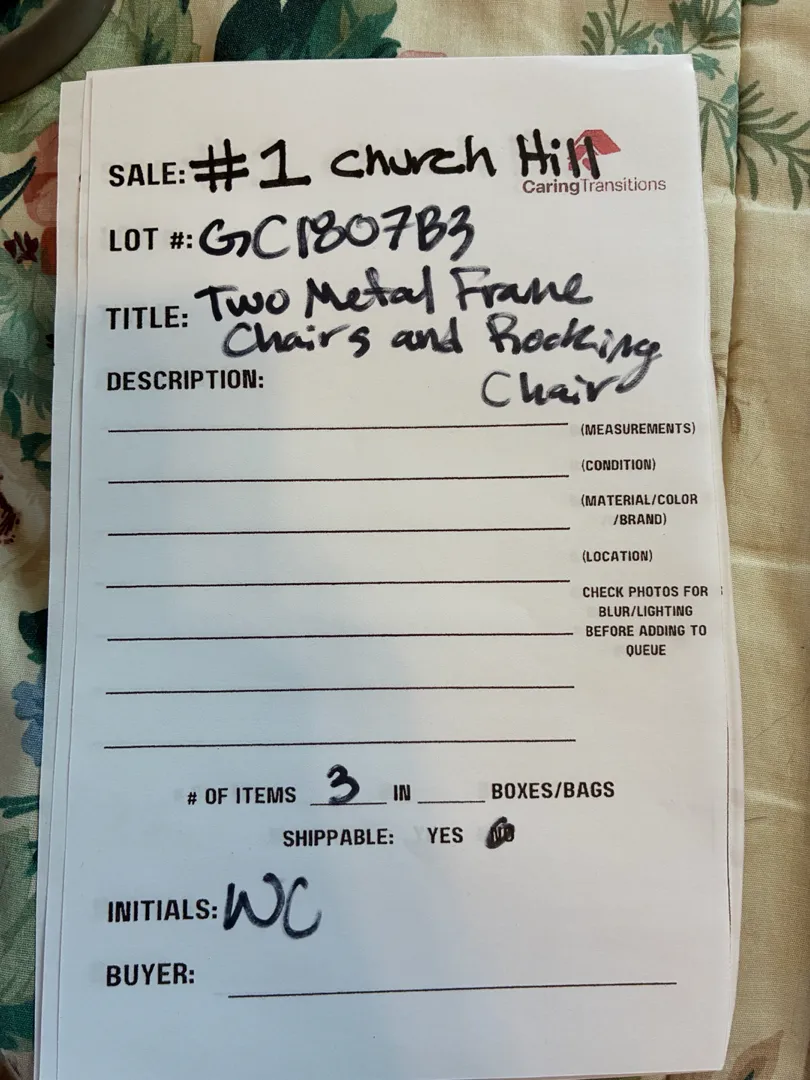 SALE: #1 Church Hill
CaringTransitions
LOT #: GC1807B3
TITLE: Two Metal Frame
Chairs and Rocking
Chair
DESCRIPTION:
(MEASUREMENTS)
(CONDITION)
(MATERIAL/COLOR
/BRAND)
(LOCATION)
CHECK PHOTOS FOR
BLUR/LIGHTING
BEFORE ADDING TO
QUEUE
# OF ITEMS 3 IN ____ BOXES/BAGS
SHIPPABLE: YES NO
INITIALS: WC
BUYER: